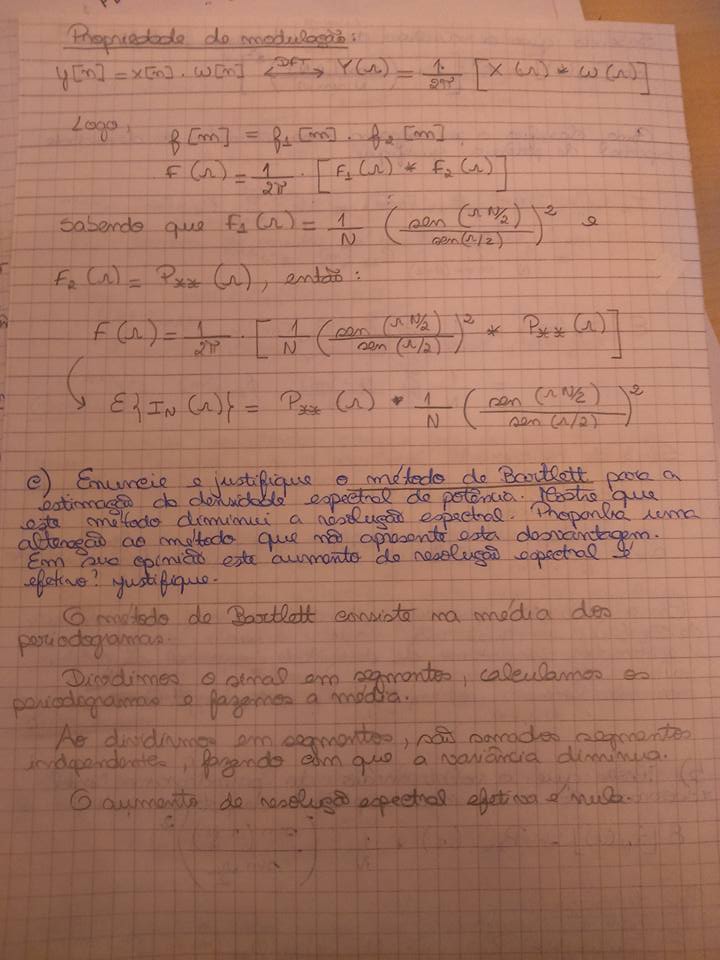 Propriedade de modulação:
y[n] = x[n] . w[n] <--DFT--> Y(Ω) = 1/2π [X(Ω) * W(Ω)]
Logo,
f[m] = f1[m] . f2[m]
F(Ω) = 1/2π . [F1(Ω) * F2(Ω)]
sabendo que F1(Ω) = 1/N (sen(Ω N/2)/sen(Ω/2))² e
F2(Ω) = Pxx(Ω), então:
F(Ω) = 1/2π . [1/N (sen(Ω N/2)/sen(Ω/2))² * Pxx(Ω)]
E{IN(Ω)} = Pxx(Ω) * 1/N (sen(Ω N/2)/sen(Ω/2))²
e) Enuncie e justifique o método de Bartlett para a
estimação da densidade espectral de potência. Mostre que
este método diminui a resolução espectral. Proponha uma
alteração ao método que não apresente esta desvantagem.
Em sua opinião este aumento de resolução espectral é
efetivo? Justifique.
O método de Bartlett consiste na média dos
periodogramas.
Dividimos o sinal em segmentos, calculamos os
periodogramas e fazemos a média.
Ao dividirmos em segmentos, são somados segmentos
independentes, fazendo com que a variância diminua.
O aumento de resolução espectral efetiva é nula.